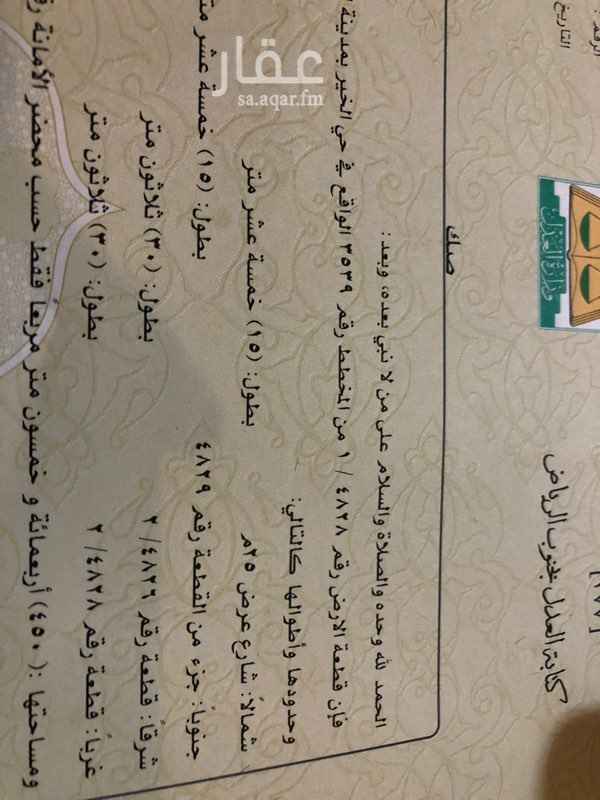 الرقم :
التاريخ
وزارة العدل
[٢٧٧]
كتابة العدل بجنوب الرياض
صك
الحمد لله وحده والصلاة والسلام على من لا نبي بعده، وبعد:
فإن قطعة الارض رقم ٤٨٢٨ / ١ من المخطط رقم ٣٥٣٩ الواقع في حي الخير بمدينة
وحدودها وأطوالها كالتالي:
شمالاً: شارع عرض ٢٥م بطول: (١٥) خمسة عشر متر
جنوباً: جزء من القطعة رقم ٤٨٢٩ بطول: (١٥) خمسة عشر متر
شرقاً: قطعة رقم ٤٨٢٦/ ٢ بطول: (٣٠) ثلاثون متر
غرباً: قطعة رقم ٤٨٢٨/ ٢ بطول: (٣٠) ثلاثون متر
ومساحتها :(٤٥٠) أربعمائة و خمسون متر مربعاً فقط حسب محضر الأمانة
عقار
sa.aqar.fm